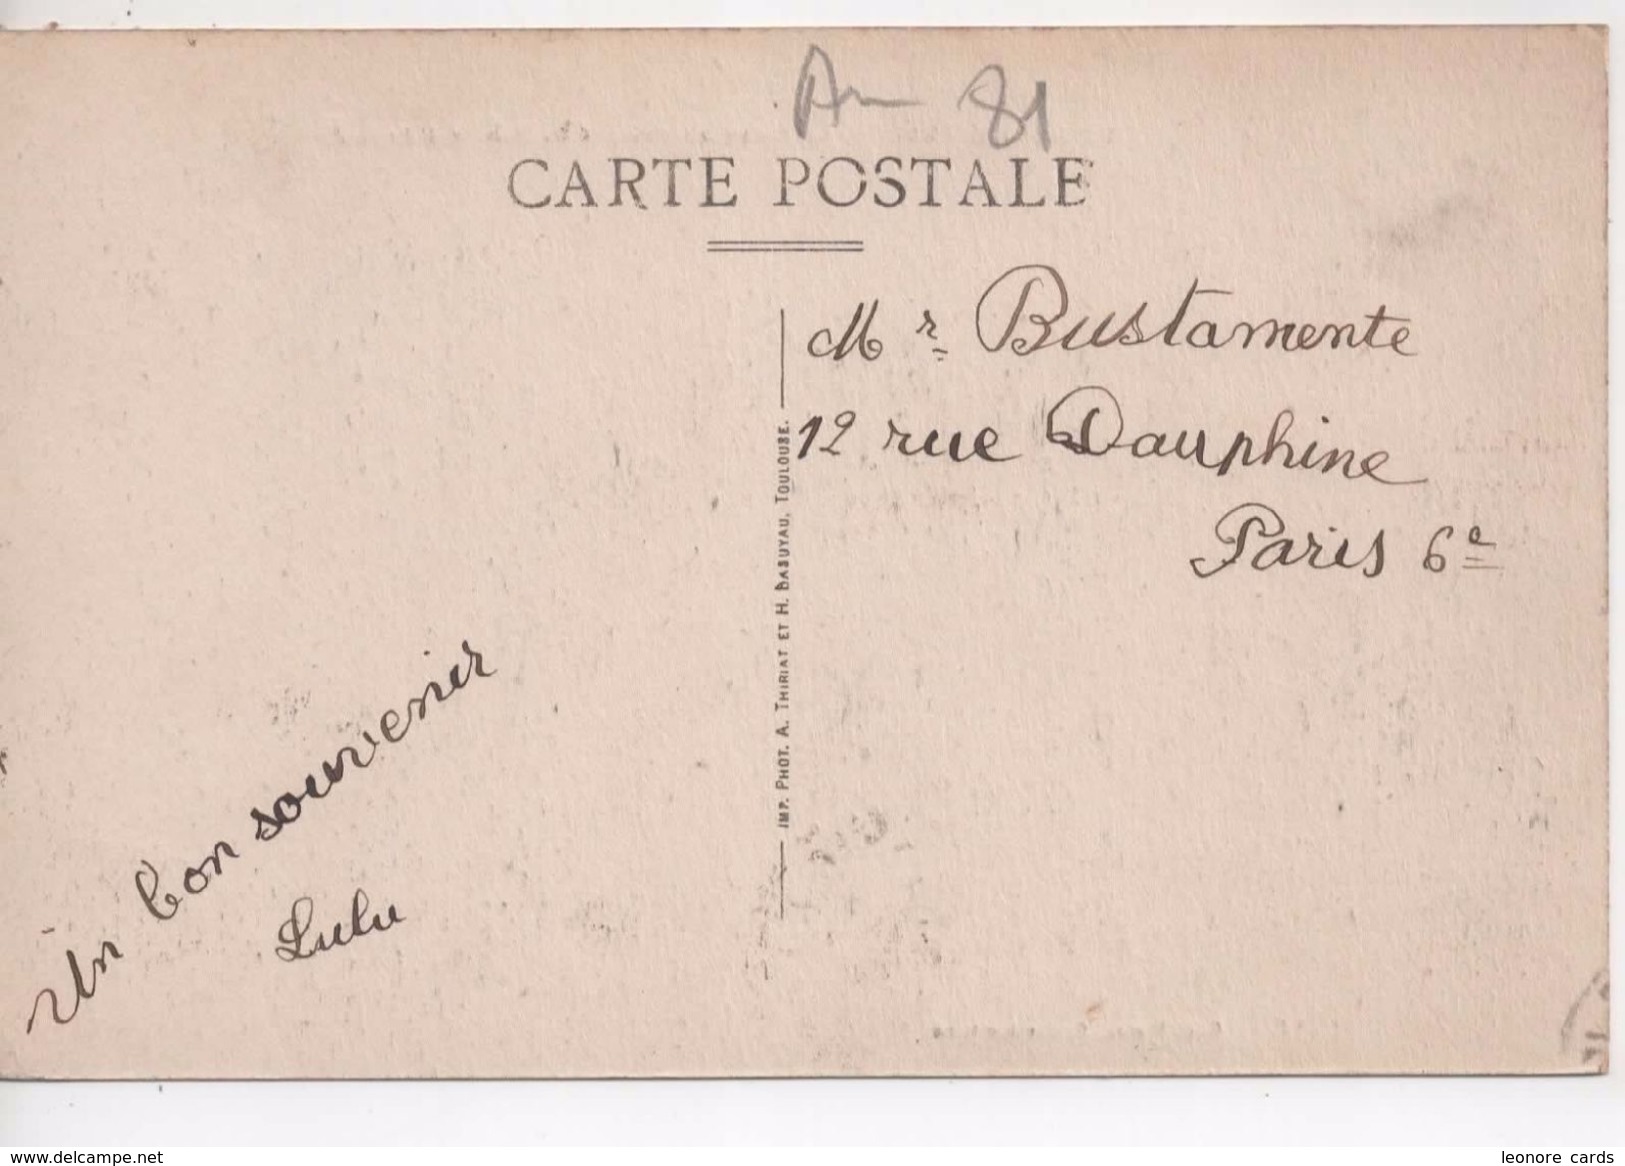 An 81
CARTE POSTALE
Mr. Bustamente
12 rue Dauphine
Paris 6e
IMP. PHOT. A. THIRIAT ET H. BASUYAU. TOULOUSE.
Un bon souvenir
Lulu
www.delcampe.net
leonore cards